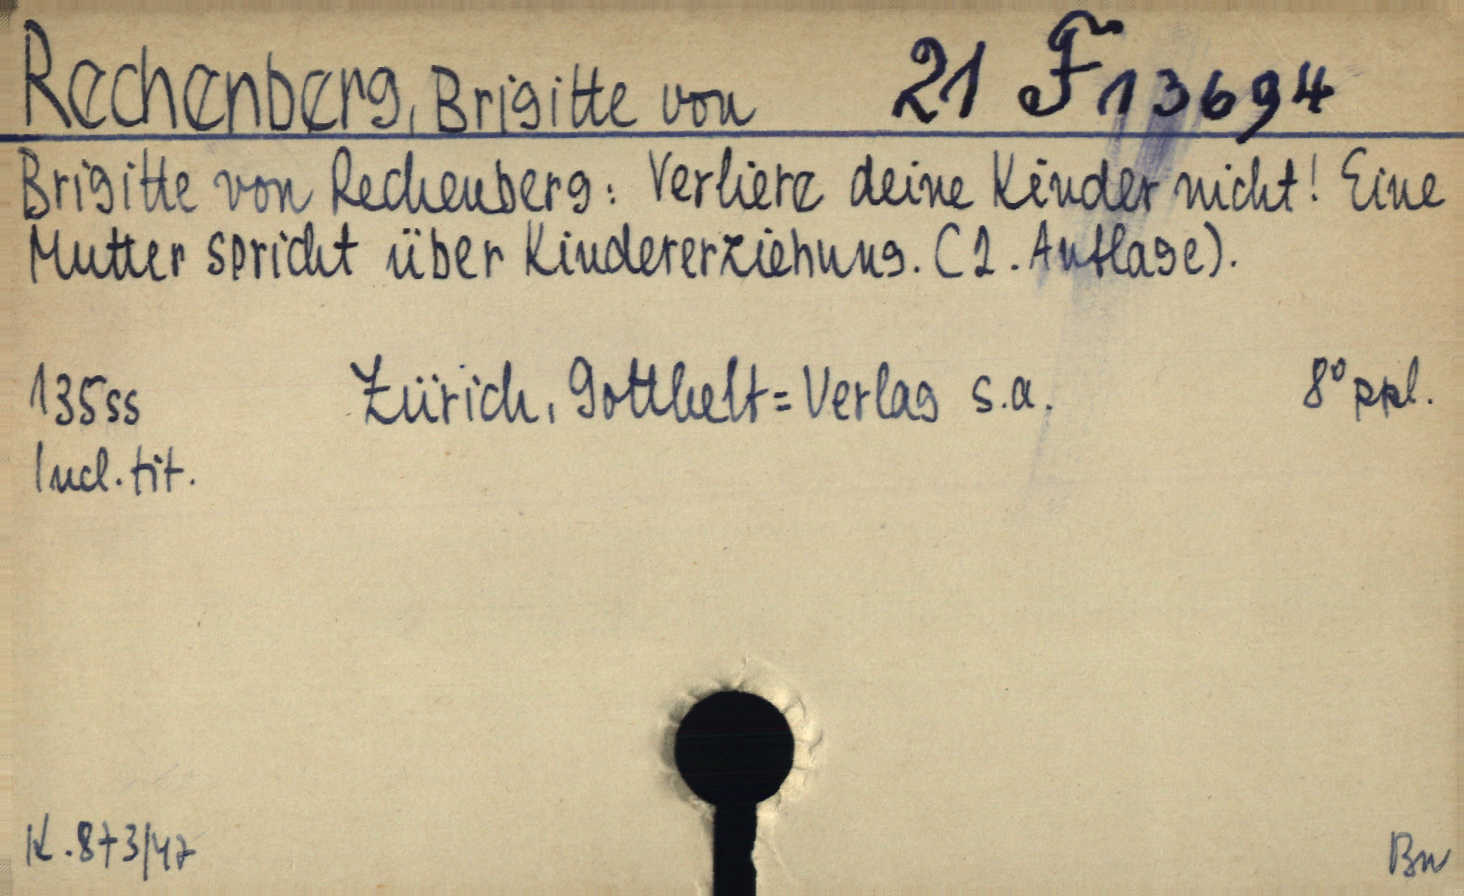 Rechenberg, Brigitte von 21 F 13694
Brigitte von Rechenberg: Verliere deine Kinder nicht! Eine
Mutter spricht über Kindererziehung. (2. Auflage).
135ss Zürich, Gotthelf=Verlag s.a. 8° ppl.
Incl. tit.
K. 873/47 Bn